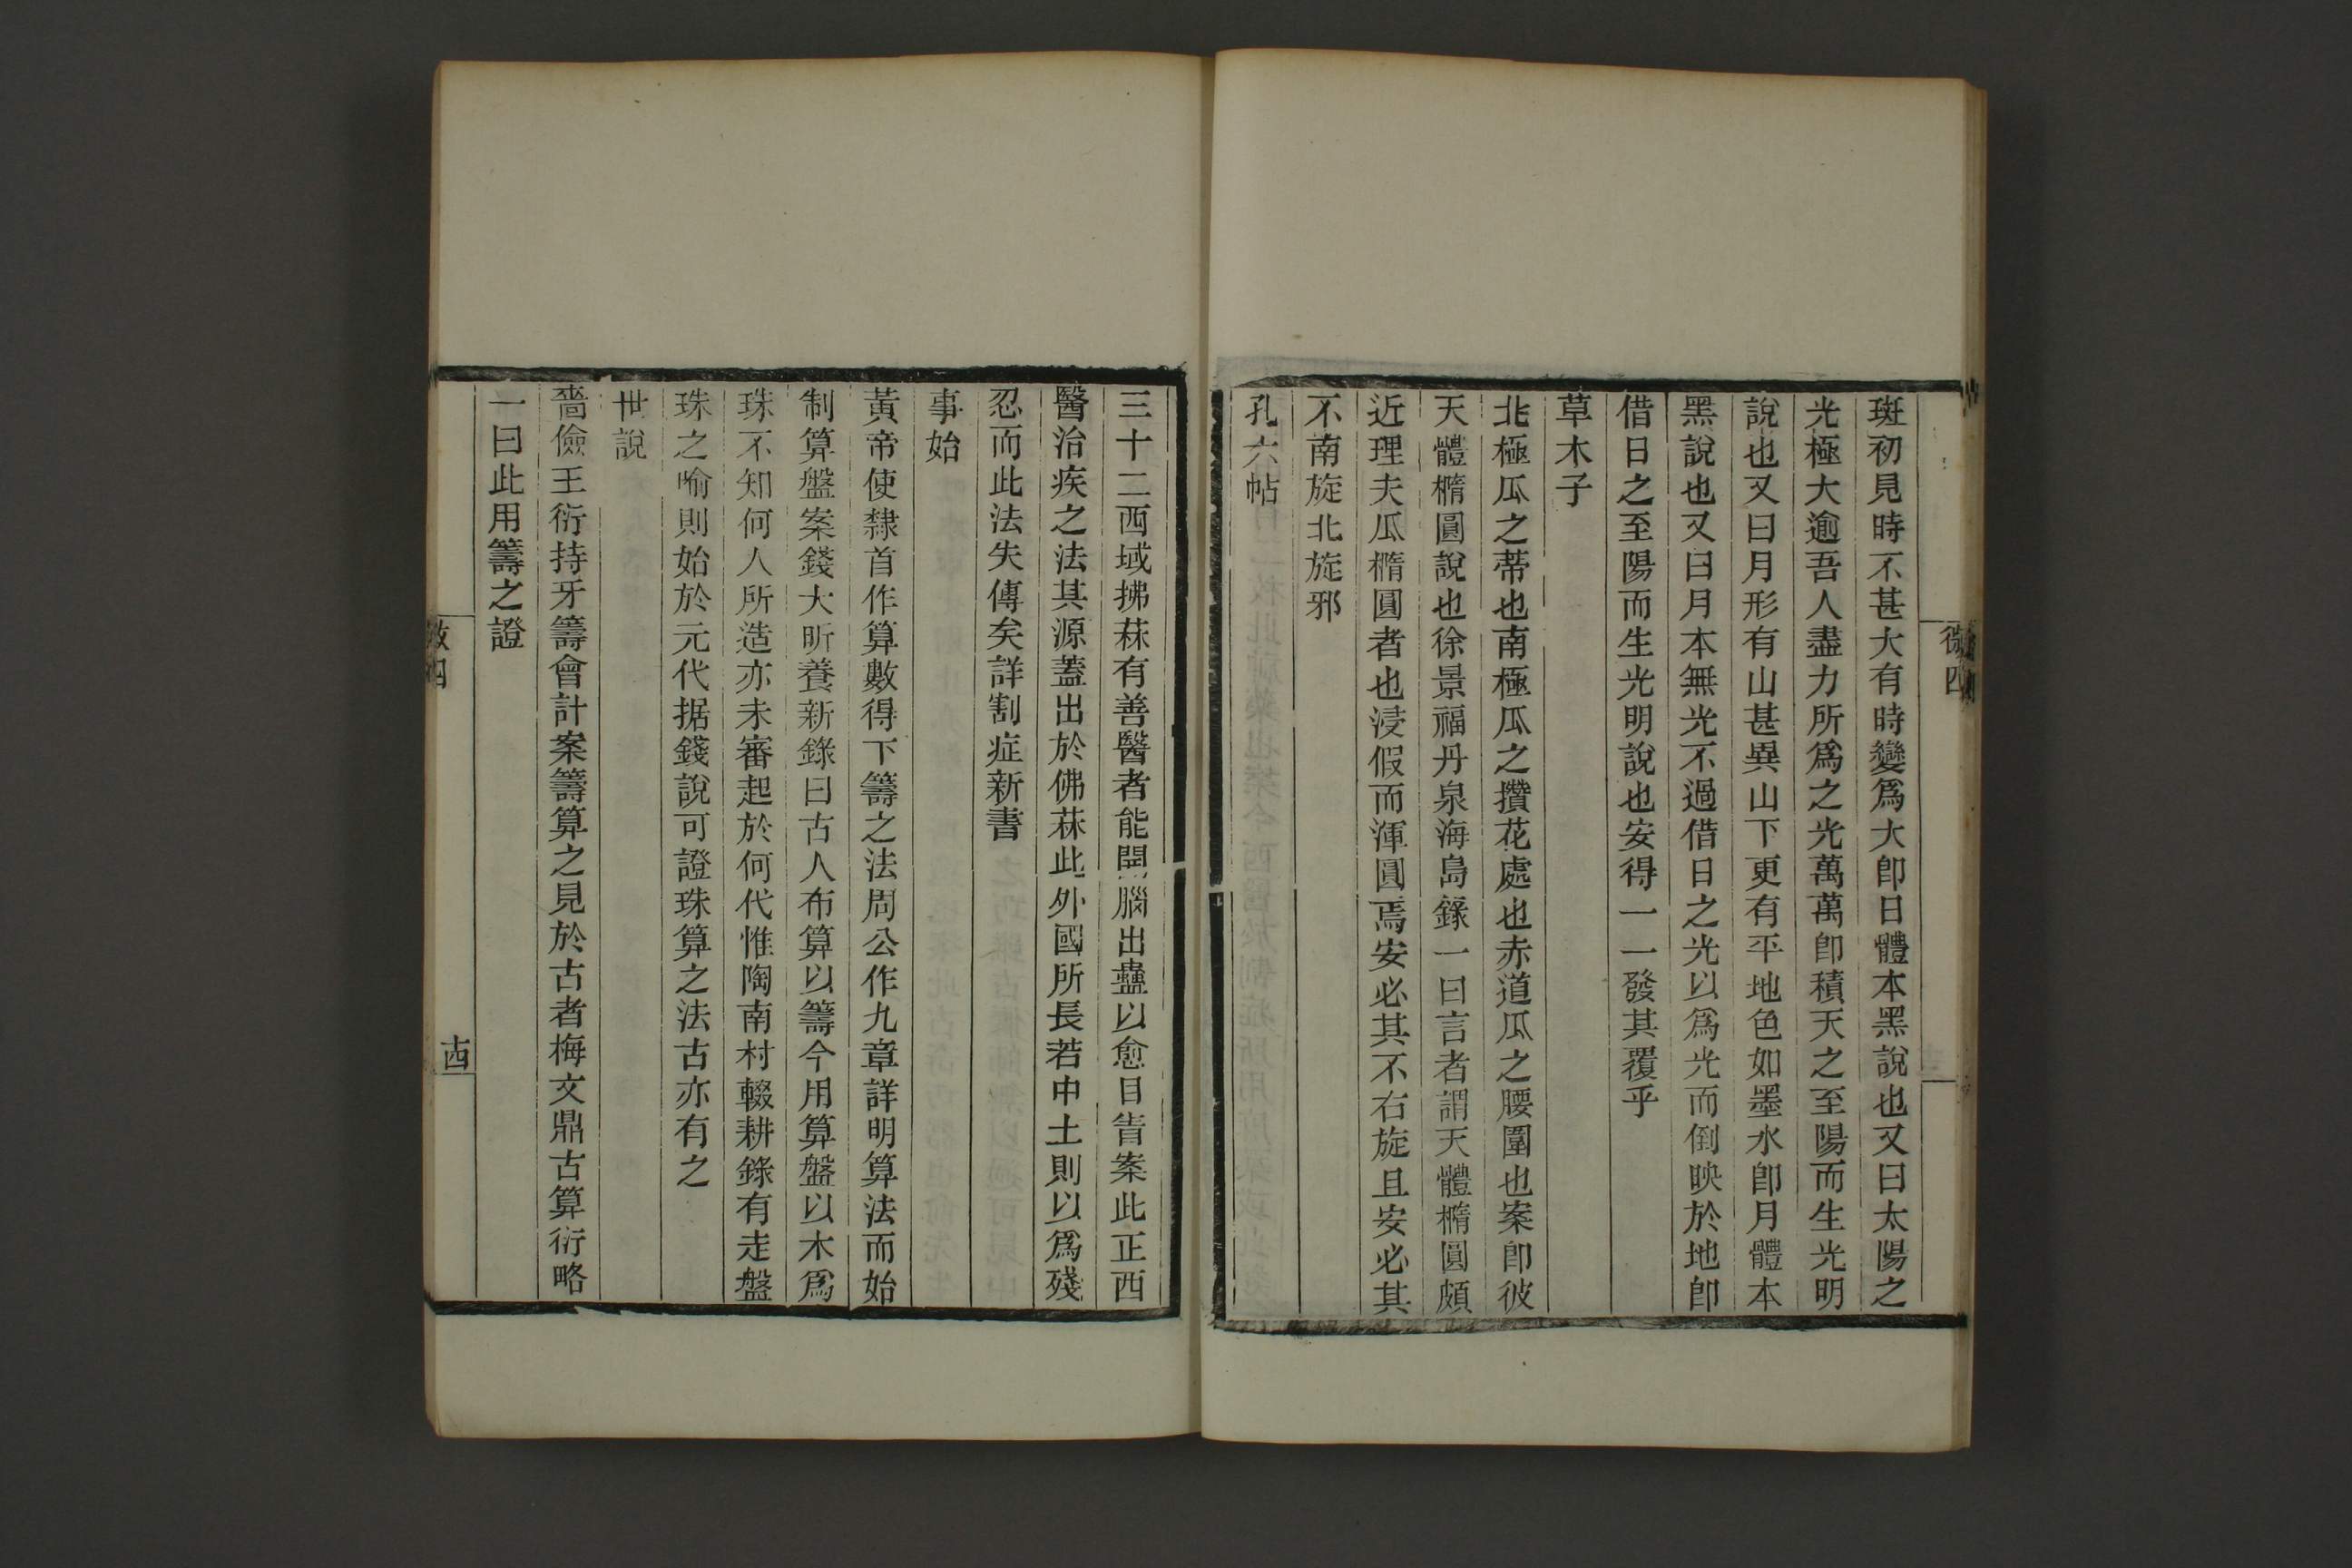 微四
斑初見時不甚大有時變爲大卽日體本黑說也又曰太陽之
光極大逾吾人盡力所爲之光萬萬卽積天之至陽而生光明
說也又曰月形有山甚異山下更有平地色如墨水卽月體本
黑說也又曰月本無光不過借日之光以爲光而倒映於地卽
借日之至陽而生光明說也安得一一發其覆乎
草木子
北極瓜之蔕也南極瓜之攢花處也赤道瓜之腰圍也案卽彼
天體橢圓說也徐景福丹泉海島錄一曰言者謂天體橢圓頗
近理夫瓜橢圓者也浸假而渾圓焉安必其不右旋且安必其
不南旋北旋邪
孔六帖
三十二西域拂菻有善醫者能開腦出蠱以愈目眚案此正西
醫治疾之法其源蓋出於佛菻此外國所長若中土則以爲殘
忍而此法失傳矣詳割症新書
事始
黃帝使隸首作算數得下籌之法周公作九章詳明算法而始
制算盤案錢大昕養新錄曰古人布算以籌今用算盤以木爲
珠不知何人所造亦未審起於何代惟陶南村輟耕錄有走盤
珠之喻則始於元代据錢說可證珠算之法古亦有之
世說
嗇儉王衍持牙籌會計案籌算之見於古者梅文鼎古算衍略
一曰此用籌之證
十四